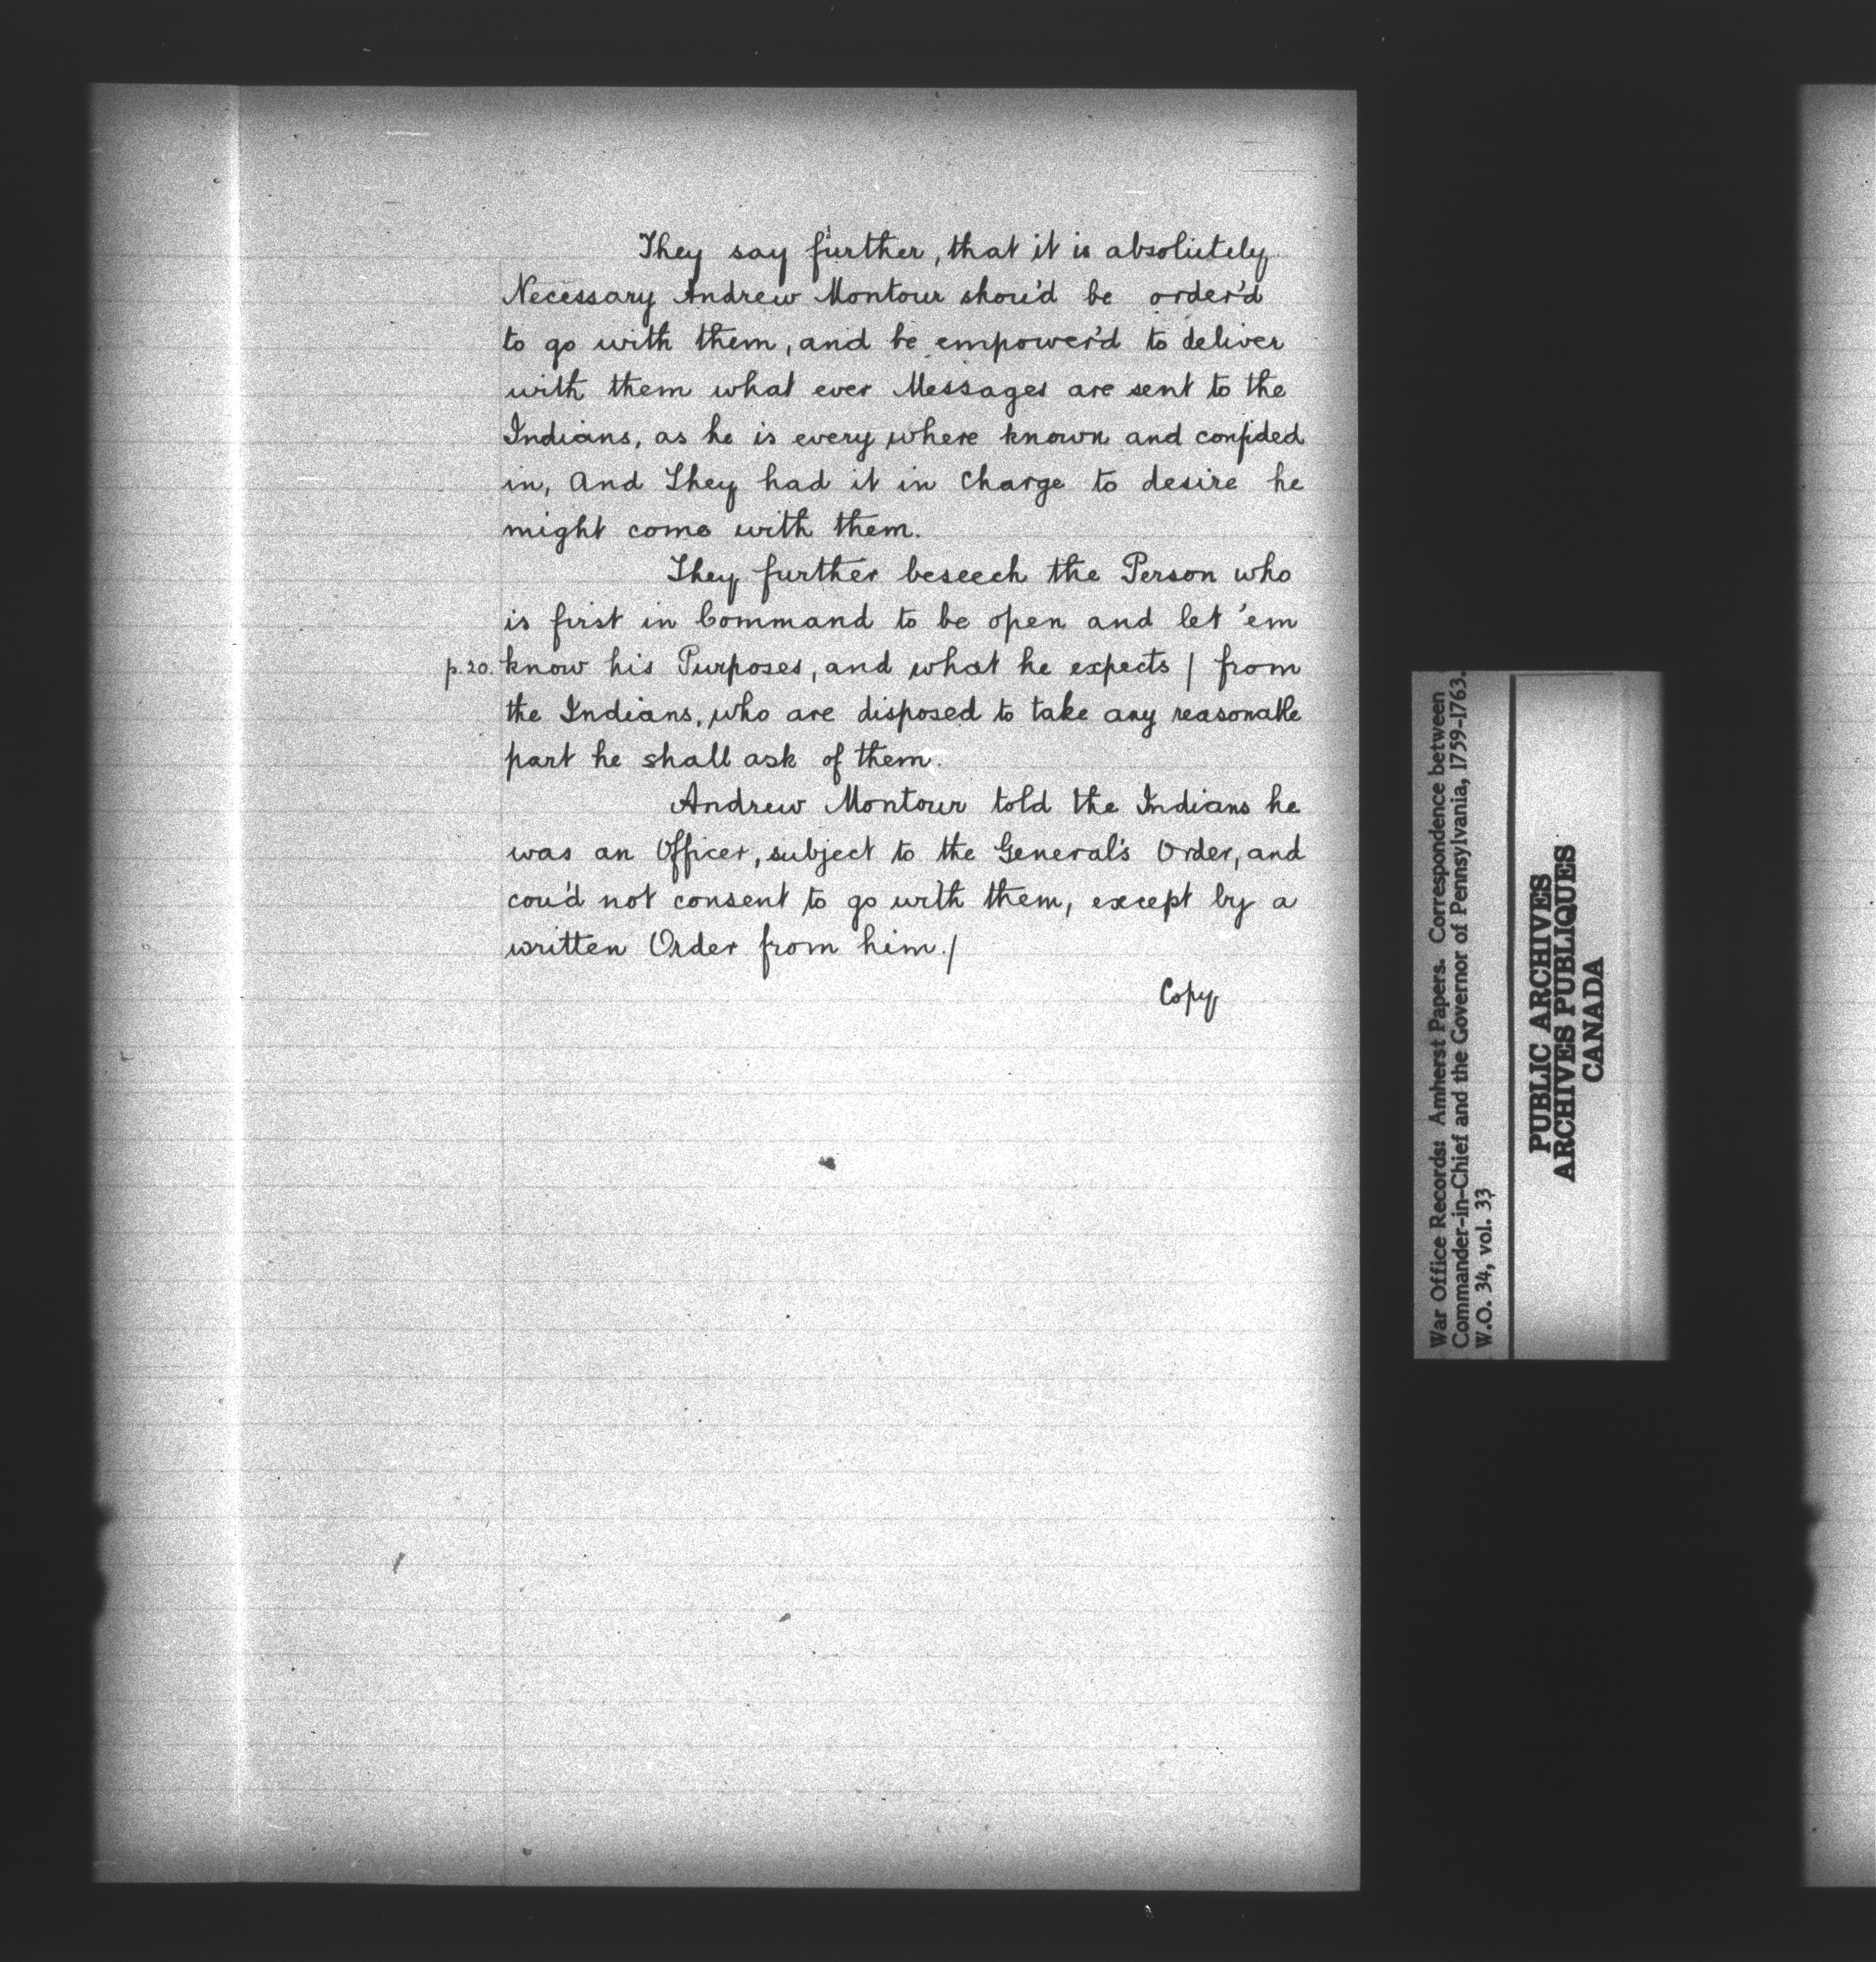 They say further, that it is absolutely
Necessary Andrew Montour shou'd be order'd
to go with them, and be empower'd to deliver
with them what ever Messages are sent to the
Indians, as he is every where known and confided
in, And They had it in Charge to desire he
might come with them.
They further beseech the Person who
is first in Command to be open and let 'em
p.20. know his Purposes, and what he expects / from
the Indians, who are disposed to take any reasonable
part he shall ask of them.
Andrew Montour told the Indians he
was an Officer, subject to the General's Order, and
cou'd not consent to go with them, except by a
written Order from him./
Copy
War Office Records: Amherst Papers. Correspondence between
Commander-in-Chief and the Governor of Pennsylvania, 1759-1763.
W.O. 34, vol. 33
PUBLIC ARCHIVES
ARCHIVES PUBLIQUES
CANADA